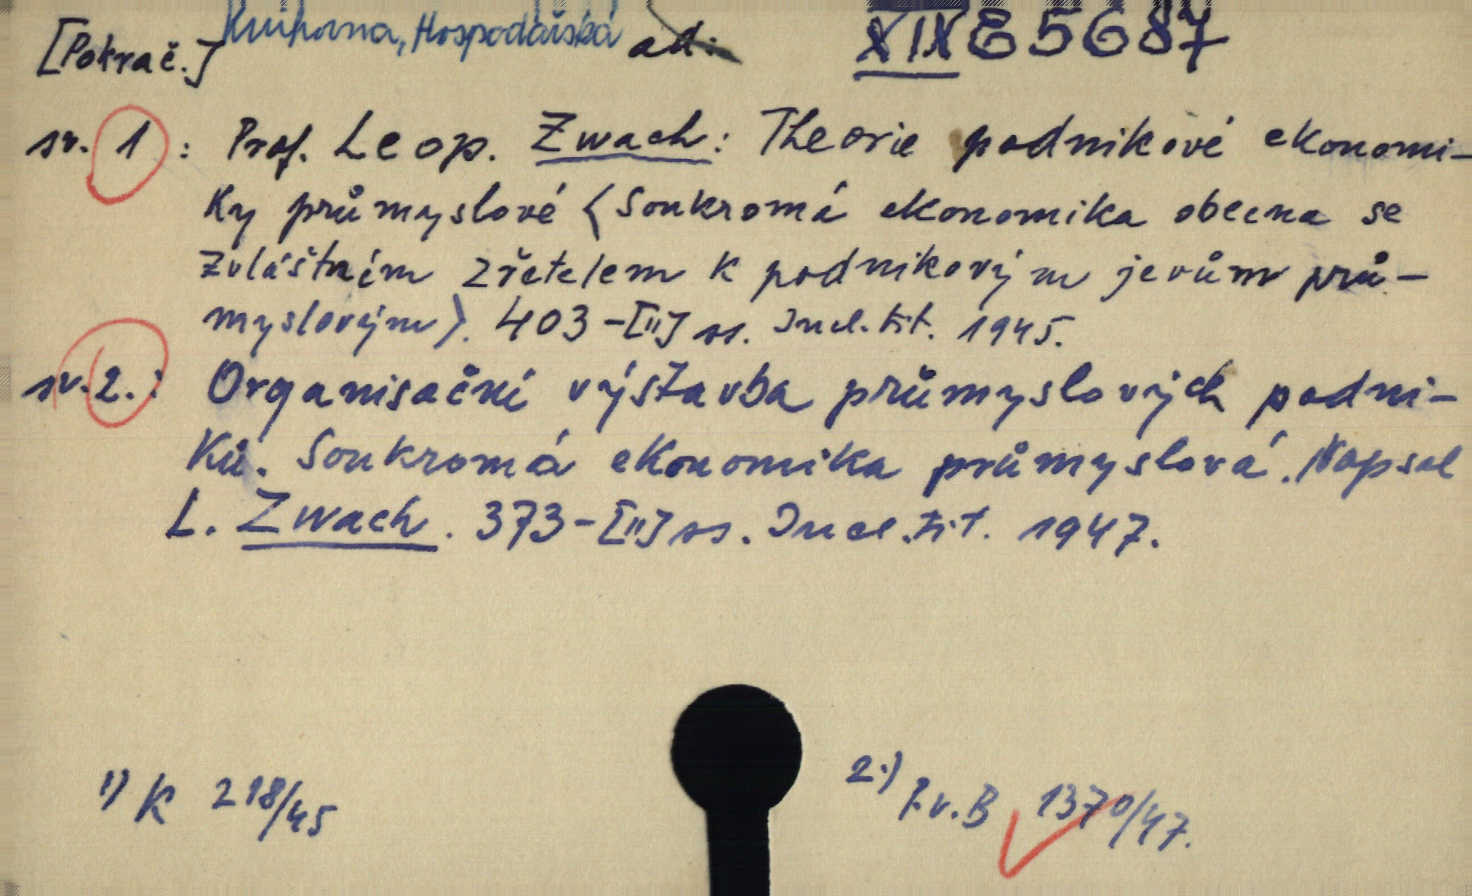 [Pokrač.] Knihovna, Hospodářská ad: XIX E 5687
sv. 1 : Prof. Leop. Zwach: Theorie podnikové ekonomi-
ky průmyslové (Soukromá ekonomika obecná se
zvláštním zřetelem k podnikovým jevům prů-
myslovým). 403-[II] ss. Incl. tit. 1945.
sv. 2. : Organisační výstavba průmyslových podni-
ků. Soukromá ekonomika průmyslová. Napsal
L. Zwach. 373-[II] ss. Incl. tit. 1947.
1) K 218/45
2.) P.v.B 1370/47.